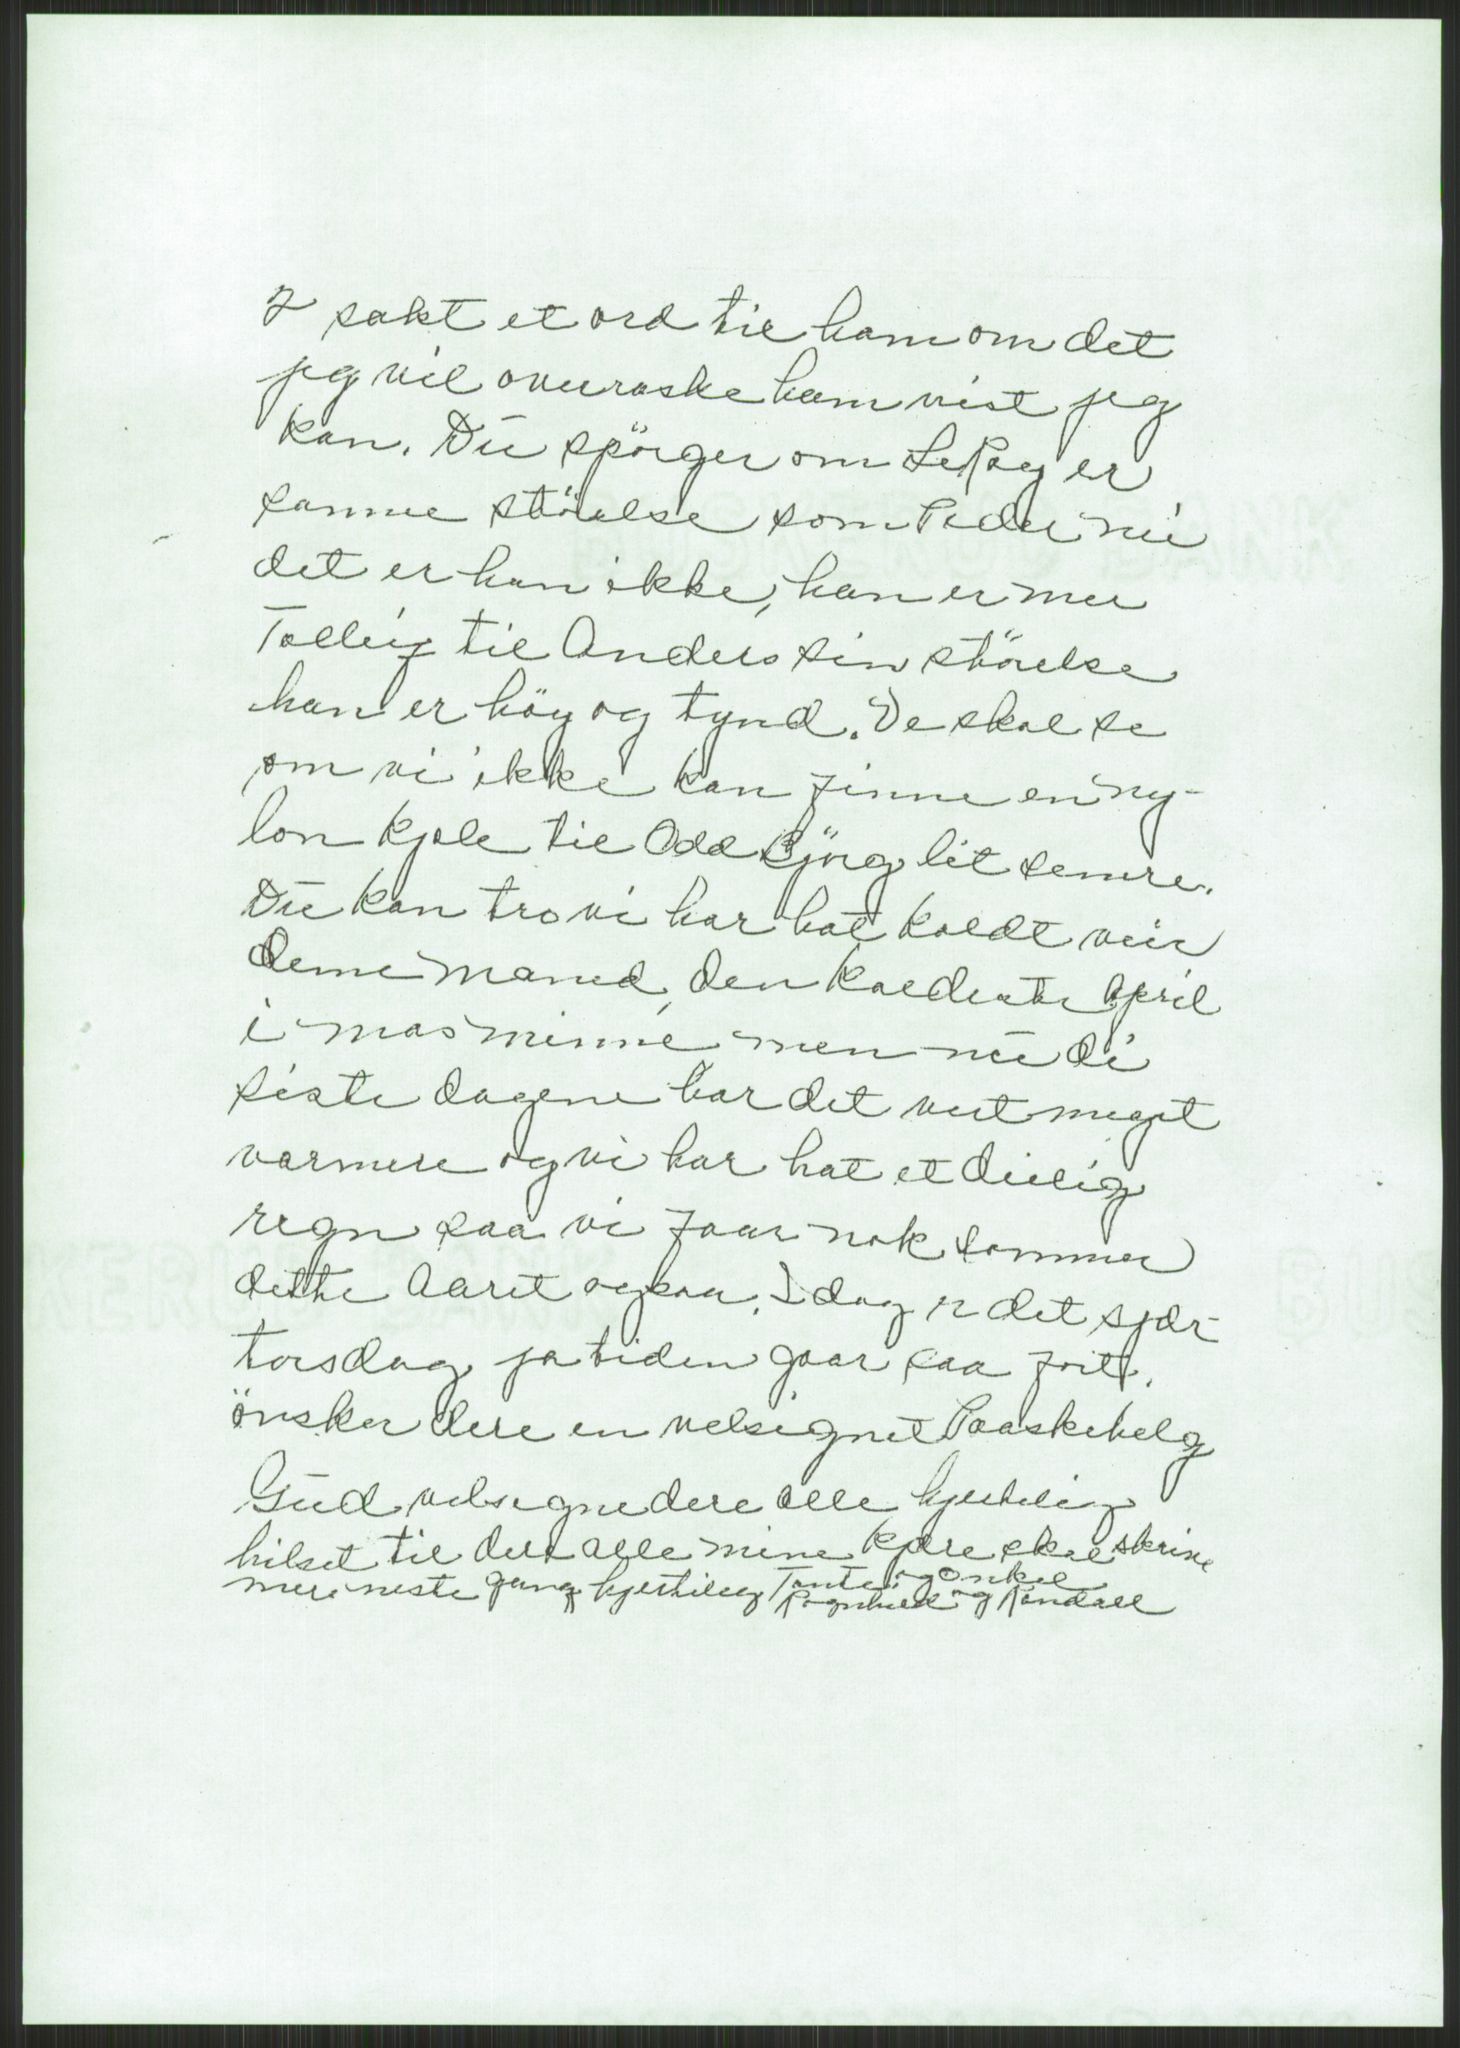 7 sakt et ord til ham om det
jeg vil overraske ham vist jeg
kan. Du spörger om LeRoy er
samme störelse som Peder nu
det er han ikke, han er mer
Tolleif til Anders sin störelse
han er höy og tynd. Ve skal se
om vi ikke kan finne en ny-
lon kjole til Odd Björg lit senere.
Du kan tro vi har hat koldt veir
denne maned, den koldeste April
i mas minne men nu di
siste dagene har det vert meget
varmere og vi har hat et deilig
regn saa vi faar nok sommer
dette Aaret ogsaa. I dag er det sjær-
torsdag ja tiden gaar saa fort.
önsker dere en velsignet Paaskehelg
Gud velsigne dere alle hjertelig
hilset til dere alle mine kjære skal skrive
mere neste gang hjertilig Tante og Onkel
Ragnhild og Randall